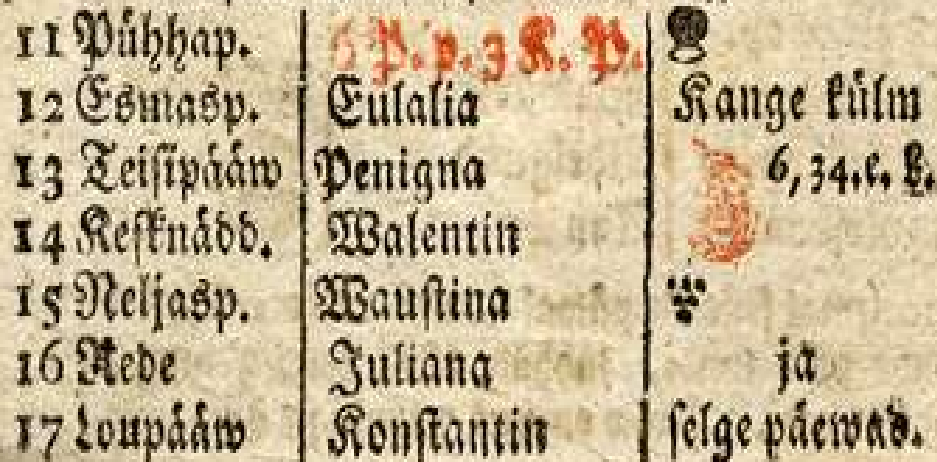 11 Pühhap. 6 P. p. 3 K. P.
12 Esmasp. Eulalia Kange külm
13 Teisipääw Penigna 6,34. e. L.
14 Kesknädd. Walentin
15 Neljasp. Waustina
16 Rede Juliana ja
17 Loupääw Konstantin selge päewad.